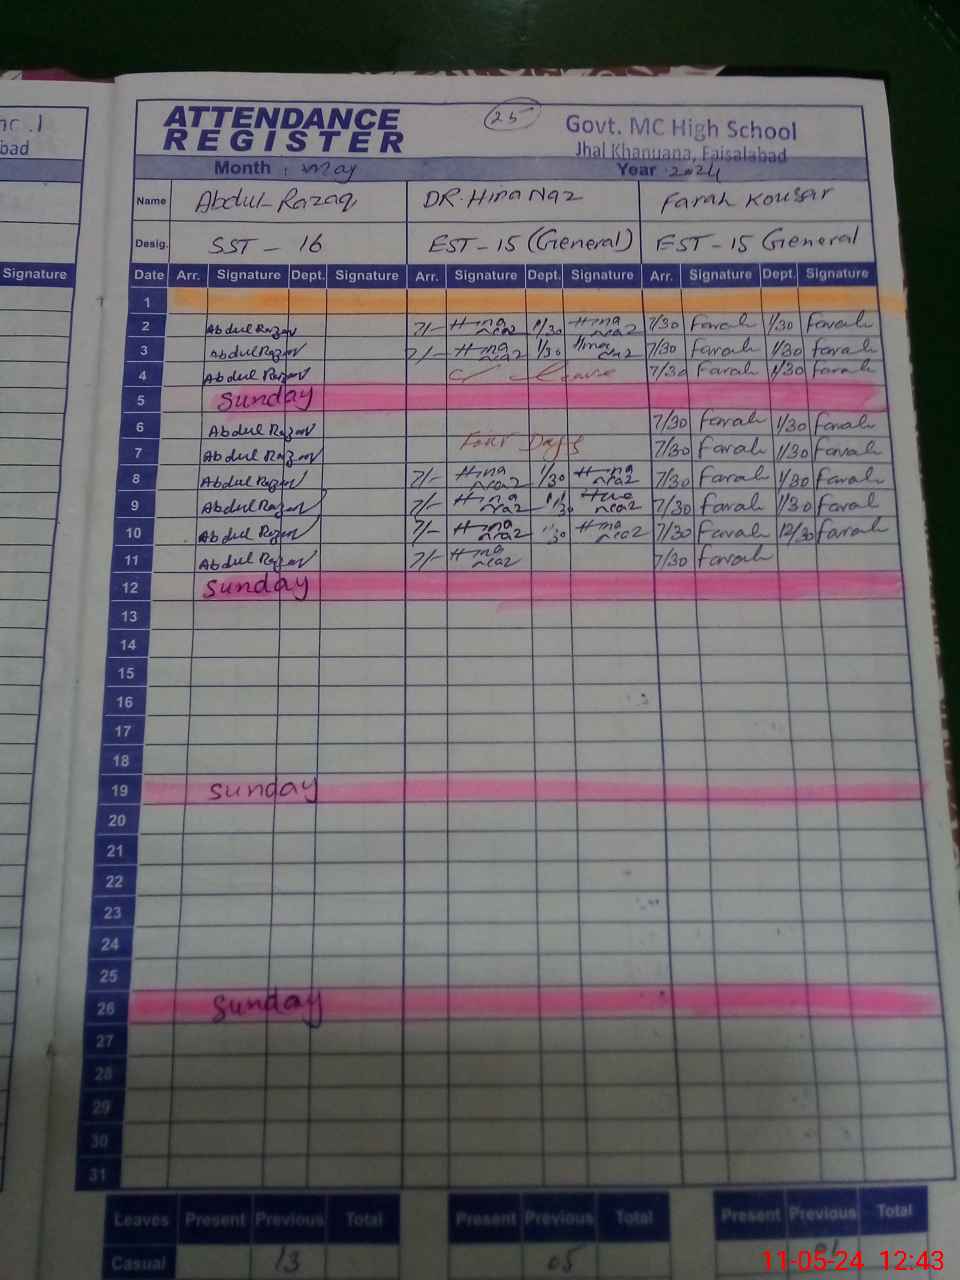 no.1
bad
Signature
ATTENDANCE
REGISTER
25
Govt. MC High School
Jhal Khanuana, Faisalabad
Month : May Year 2024
Name Abdul-Razaq DR. Hina Naz Farah Kousar
Desig. SST - 16 EST-15 (General) EST-15 General
Date Arr. Signature Dept. Signature Arr. Signature Dept. Signature Arr. Signature Dept. Signature
1
2 Abdul Razaq 7/- Hina naz 1/30 Hina naz 7/30 Farah 1/30 Farah
3 Abdul Razaq 7/- Hina naz 1/30 Hina naz 7/30 Farah 1/30 Farah
4 Abdul Razaq C/ leave 7/30 Farah 1/30 Farah
5 Sunday
6 Abdul Razaq 7/30 Farah 1/30 Farah
7 Abdul Razaq Four Days 7/30 Farah 1/30 Farah
8 Abdul Razaq 7/- Hina naz 1/30 Hina naz 7/30 Farah 1/30 Farah
9 Abdul Razaq 7/- Hina naz 1/30 Hina naz 7/30 Farah 1/30 Farah
10 Abdul Razaq 7/- Hina naz 1/30 Hina naz 7/30 Farah 12/30 Farah
11 Abdul Razaq 7/- Hina naz 7/30 Farah
12 Sunday
13
14
15
16
17
18
19 Sunday
20
21
22
23
24
25
26 Sunday
27
28
29
30
31
Leaves Present Previous Total Present Previous Total Present Previous Total
Casual 13 05 01
11-05-24 12:43